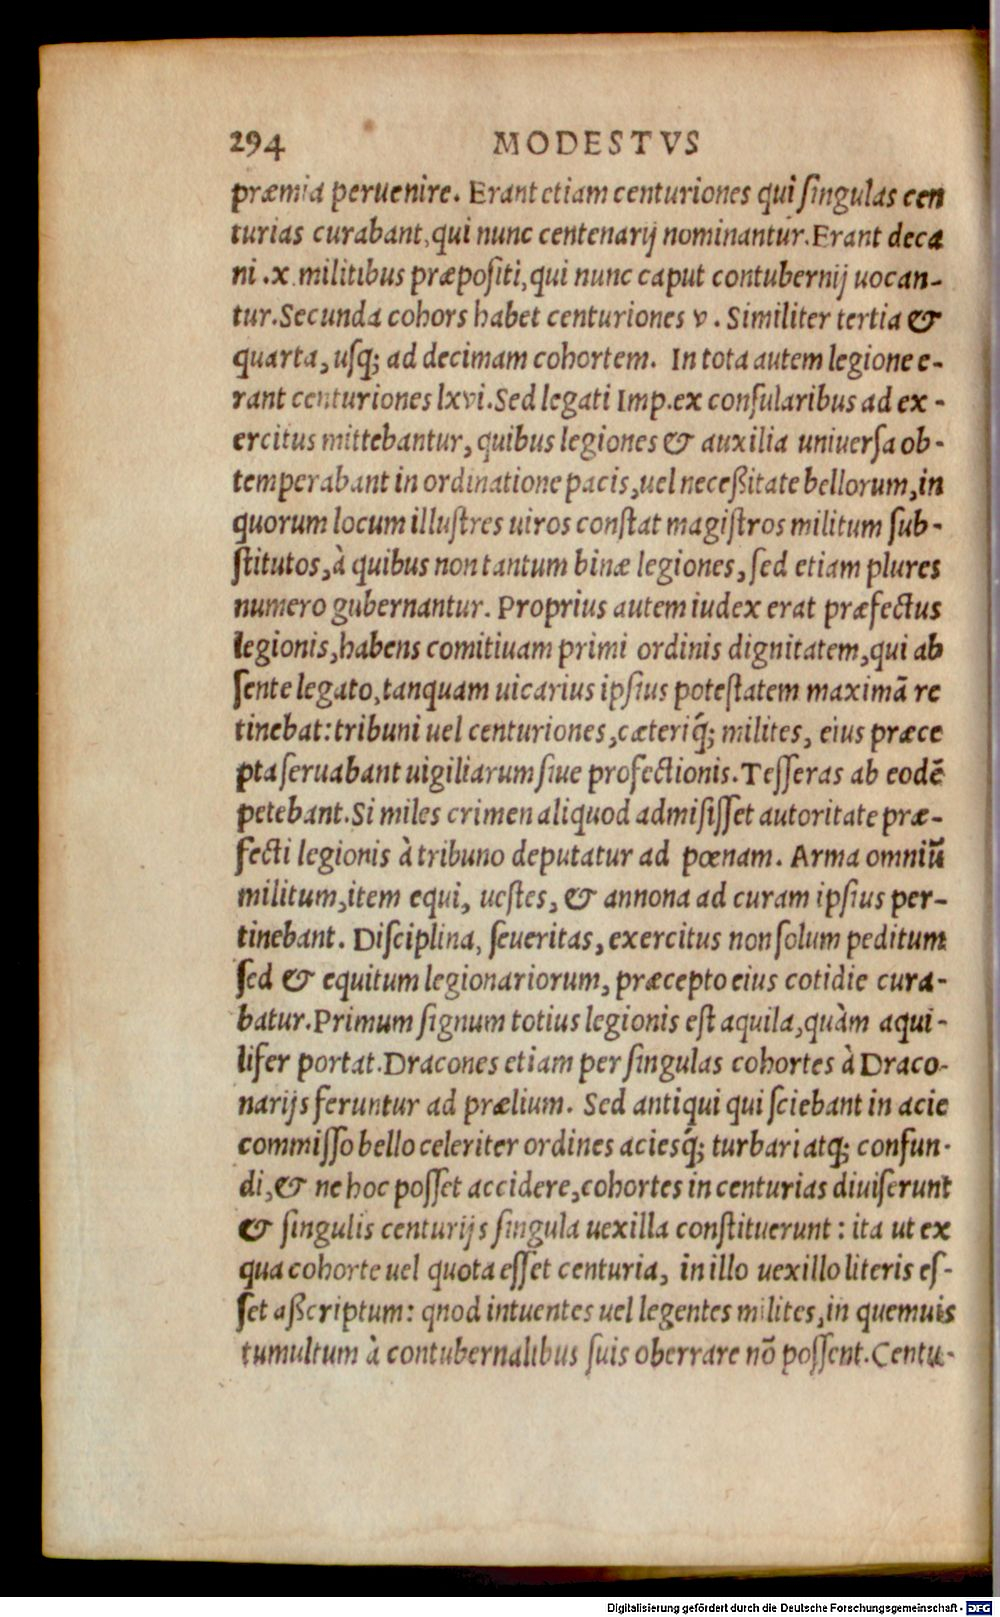 294 MODESTVS
præmia peruenire. Erant etiam centuriones qui ſingulas cen
turias curabant, qui nunc centenarij nominantur. Erant deca
ni .x. militibus præpoſiti, qui nunc caput contubernij uocan-
tur. Secunda cohors habet centuriones v. Similiter tertia &
quarta, uſq; ad decimam cohortem. In tota autem legione e-
rant centuriones lxvi. Sed legati Imp. ex conſularibus ad ex-
ercitus mittebantur, quibus legiones & auxilia uniuerſa ob-
temperabant in ordinatione pacis, uel neceßitate bellorum, in
quorum locum illuſtres uiros conſtat magiſtros militum ſub-
ſtitutos, à quibus non tantum binæ legiones, ſed etiam plures
numero gubernantur. Proprius autem iudex erat præfectus
legionis, habens comitiuam primi ordinis dignitatem, qui ab
ſente legato, tanquam uicarius ipſius poteſtatem maximā re
tinebat: tribuni uel centuriones, cæteriq́; milites, eius præce
pta ſeruabant uigiliarum ſiue profectionis. Teſſeras ab eodē
petebant. Si miles crimen aliquod admiſiſſet autoritate præ-
fecti legionis à tribuno deputatur ad pœnam. Arma omniū
militum, item equi, ueſtes, & annona ad curam ipſius per-
tinebant. Diſciplina, ſeueritas, exercitus non ſolum peditum
ſed & equitum legionariorum, præcepto eius cotidie cura-
batur. Primum ſignum totius legionis eſt aquila, quàm aqui-
lifer portat. Dracones etiam per ſingulas cohortes à Draco-
narijs feruntur ad prælium. Sed antiqui qui ſciebant in acie
commiſſo bello celeriter ordines aciesq́; turbari atq; confun-
di, & ne hoc poſſet accidere, cohortes in centurias diuiſerunt
& ſingulis centurijs ſingula uexilla conſtituerunt: ita ut ex
qua cohorte uel quota eſſet centuria, in illo uexillo literis eſ-
ſet aßcriptum: qnod intuentes uel legentes milites, in quemuis
tumultum à contubernalibus ſuis oberrare nō poſſent. Centu-
Digitalisierung gefördert durch die Deutsche Forschungsgemeinschaft - DFG